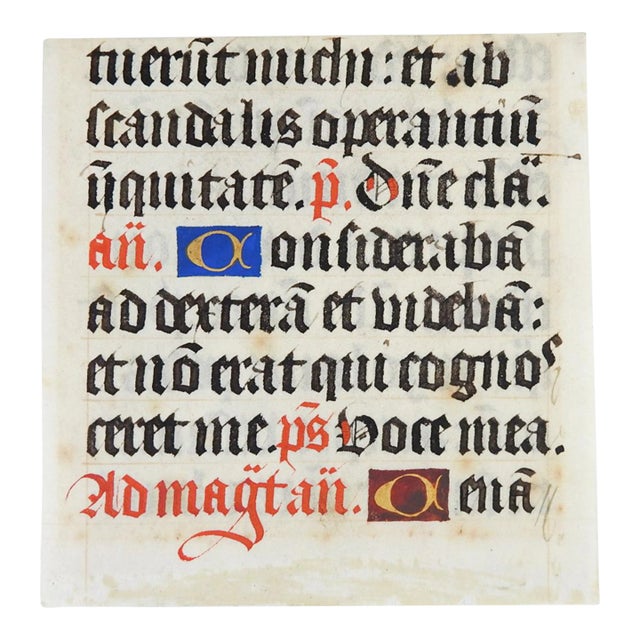 tuerūt michi: et ab
scandalis operantiū
īiquitatē. p̄. Dn̄e cla.
an̄. Considerabā
ad dexterā et videbā:
et nō erat qui cognos
ceret me. p̄s Voce mea.
Ad mag̃t an̄. Cenā